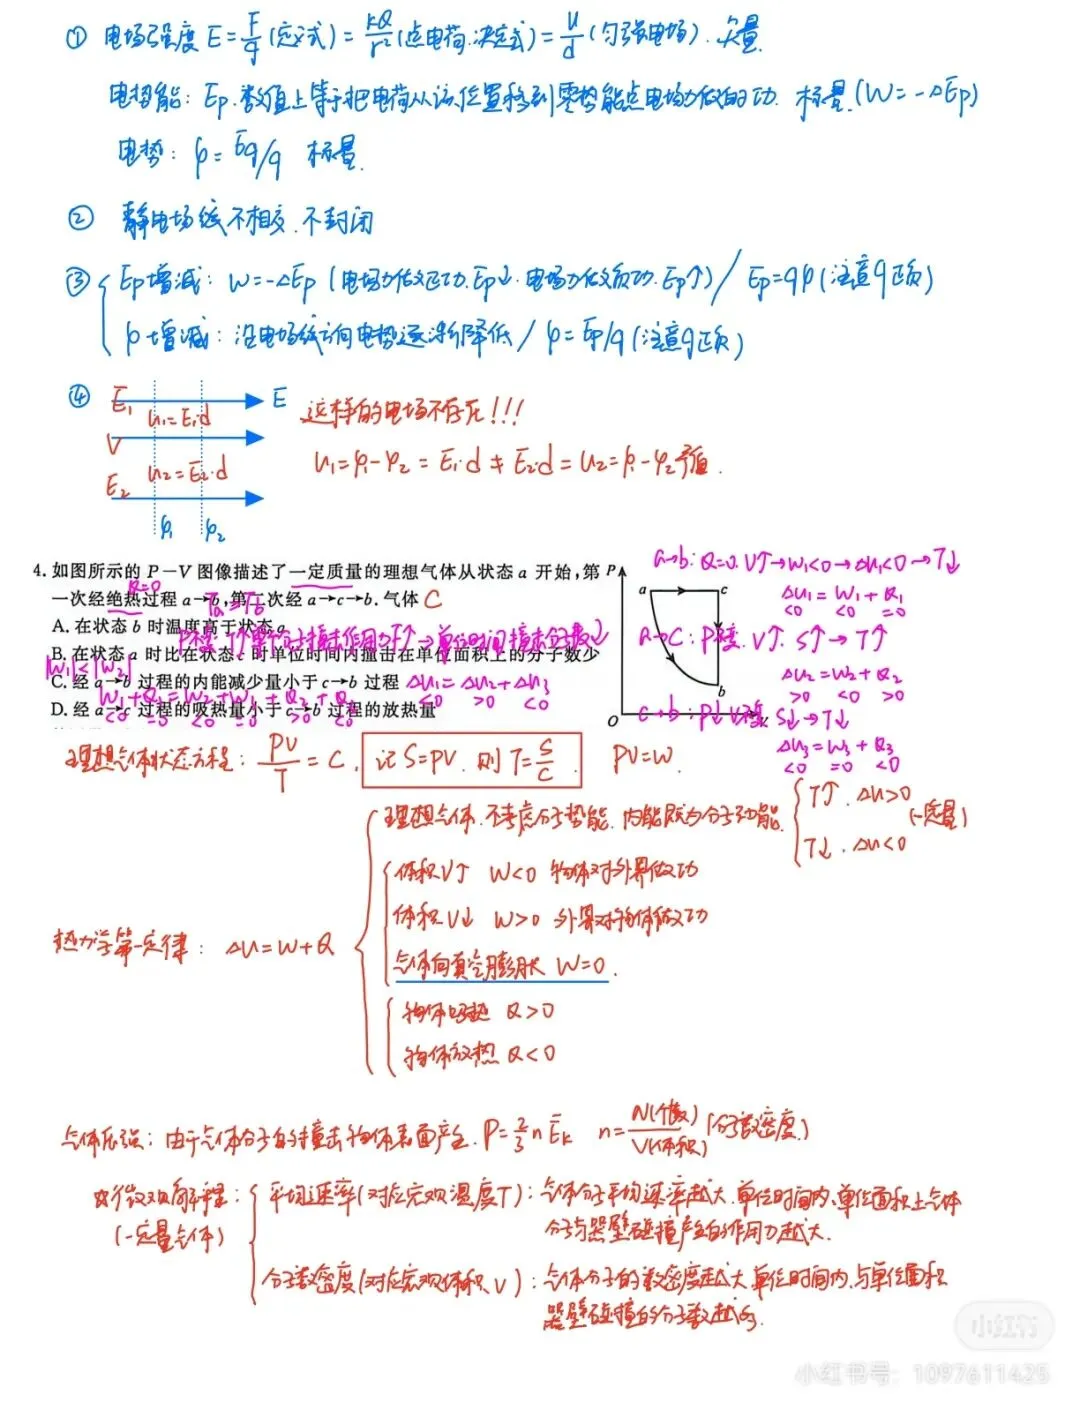 ① 电场强度 E=F/q(定义式)=kQ/r²(点电荷.决定式)=U/d(匀强电场).矢量.
电势能: Ep.数值上等于把电荷从该位置移到零势能点电场力做的功. 标量.(W=-△Ep)
电势: φ=Eq/q 标量.
② 静电场线不相交.不封闭
③ Ep增减: W=-△Ep (电场力做正功.Ep↓.电场力做负功.Ep↑) / Ep=qφ(注意q正负)
φ增减: 沿电场线方向电势逐渐降低 / φ=Ep/q(注意q正负)
④ E₁ E
u₁=E₁·d
V
u₂=E₂·d
E₂
φ₁ φ₂
这样的电场不存在!!!
u₁=φ₁-φ₂=E₁·d≠E₂·d=u₂=φ₁-φ₂矛盾.
4. 如图所示的 P-V 图像描述了一定质量的理想气体从状态 a 开始,第
Q=0
一次经绝热过程 a→b,第二次经 a→c→b. 气体 C
Ta=Tb
A. 在状态 b 时温度高于状态 a
B. 在状态 a 时比在状态 c 时单位时间内撞击在单位面积上的分子数少
|W₁|<|W₂|
C. 经 a→b 过程的内能减少量小于 c→b 过程 △u₁=△u₂+△u₃
<0 >0 <0
W₁+Q₁=W₂+W₃+Q₂+Q₃
D. 经 a→c 过程的吸热量小于 c→b 过程的放热量
<0 =0 <0 =0 >0 <0
P
a c
b
O
a→b: Q=0.V↑→W₁<0→△u₁<0→T↓
△u₁=W₁+Q₁
<0 <0 =0
a→c: P不变.V↑. S↑→T↑
△u₂=W₂+Q₂
>0 <0 >0
c→b: P↓ V不变 S↓→T↓
△u₃=W₃+Q₃
<0 =0 <0
理想气体状态方程: PV/T=C. 记S=PV.则T=S/C. PV=W.
热力学第一定律: △u=W+Q
理想气体.不考虑分子势能.内能既为分子动能.
T↑.△u>0
T↓.△u<0
(一定量)
体积V↑ W<0 物体对外界做功
体积V↓ W>0 外界对物体做功
气体向真空膨胀 W=0.
物体吸热 Q>0
物体放热 Q<0
气体压强: 由于气体分子的撞击物体表面产生. P=2/3 n Ēk n=N(个数)/V(体积) (分子数密度)
☆微观解释:
(一定量气体)
平均速率(对应宏观温度T): 气体分子平均速率越大.单位时间内.单位面积上气体
分子与器壁碰撞产生的作用力越大.
分子数密度(对应宏观体积V): 气体分子的数密度越大.单位时间内.与单位面积
器壁碰撞的分子数越多.
小红书
小红书号: 1097611425